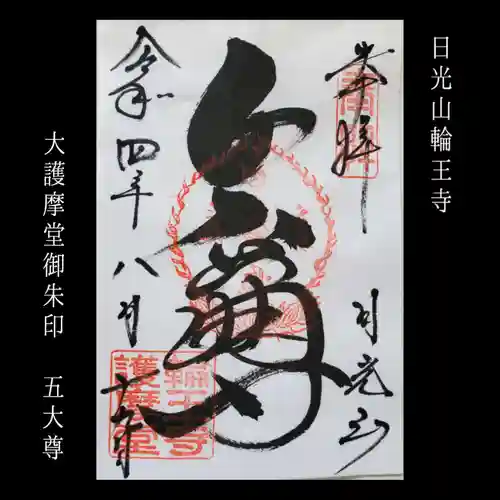 日光山輪王寺
奉拝
日光山
五大尊
令和四年八月十六日
輪王寺
護摩堂
大護摩堂御朱印 五大尊